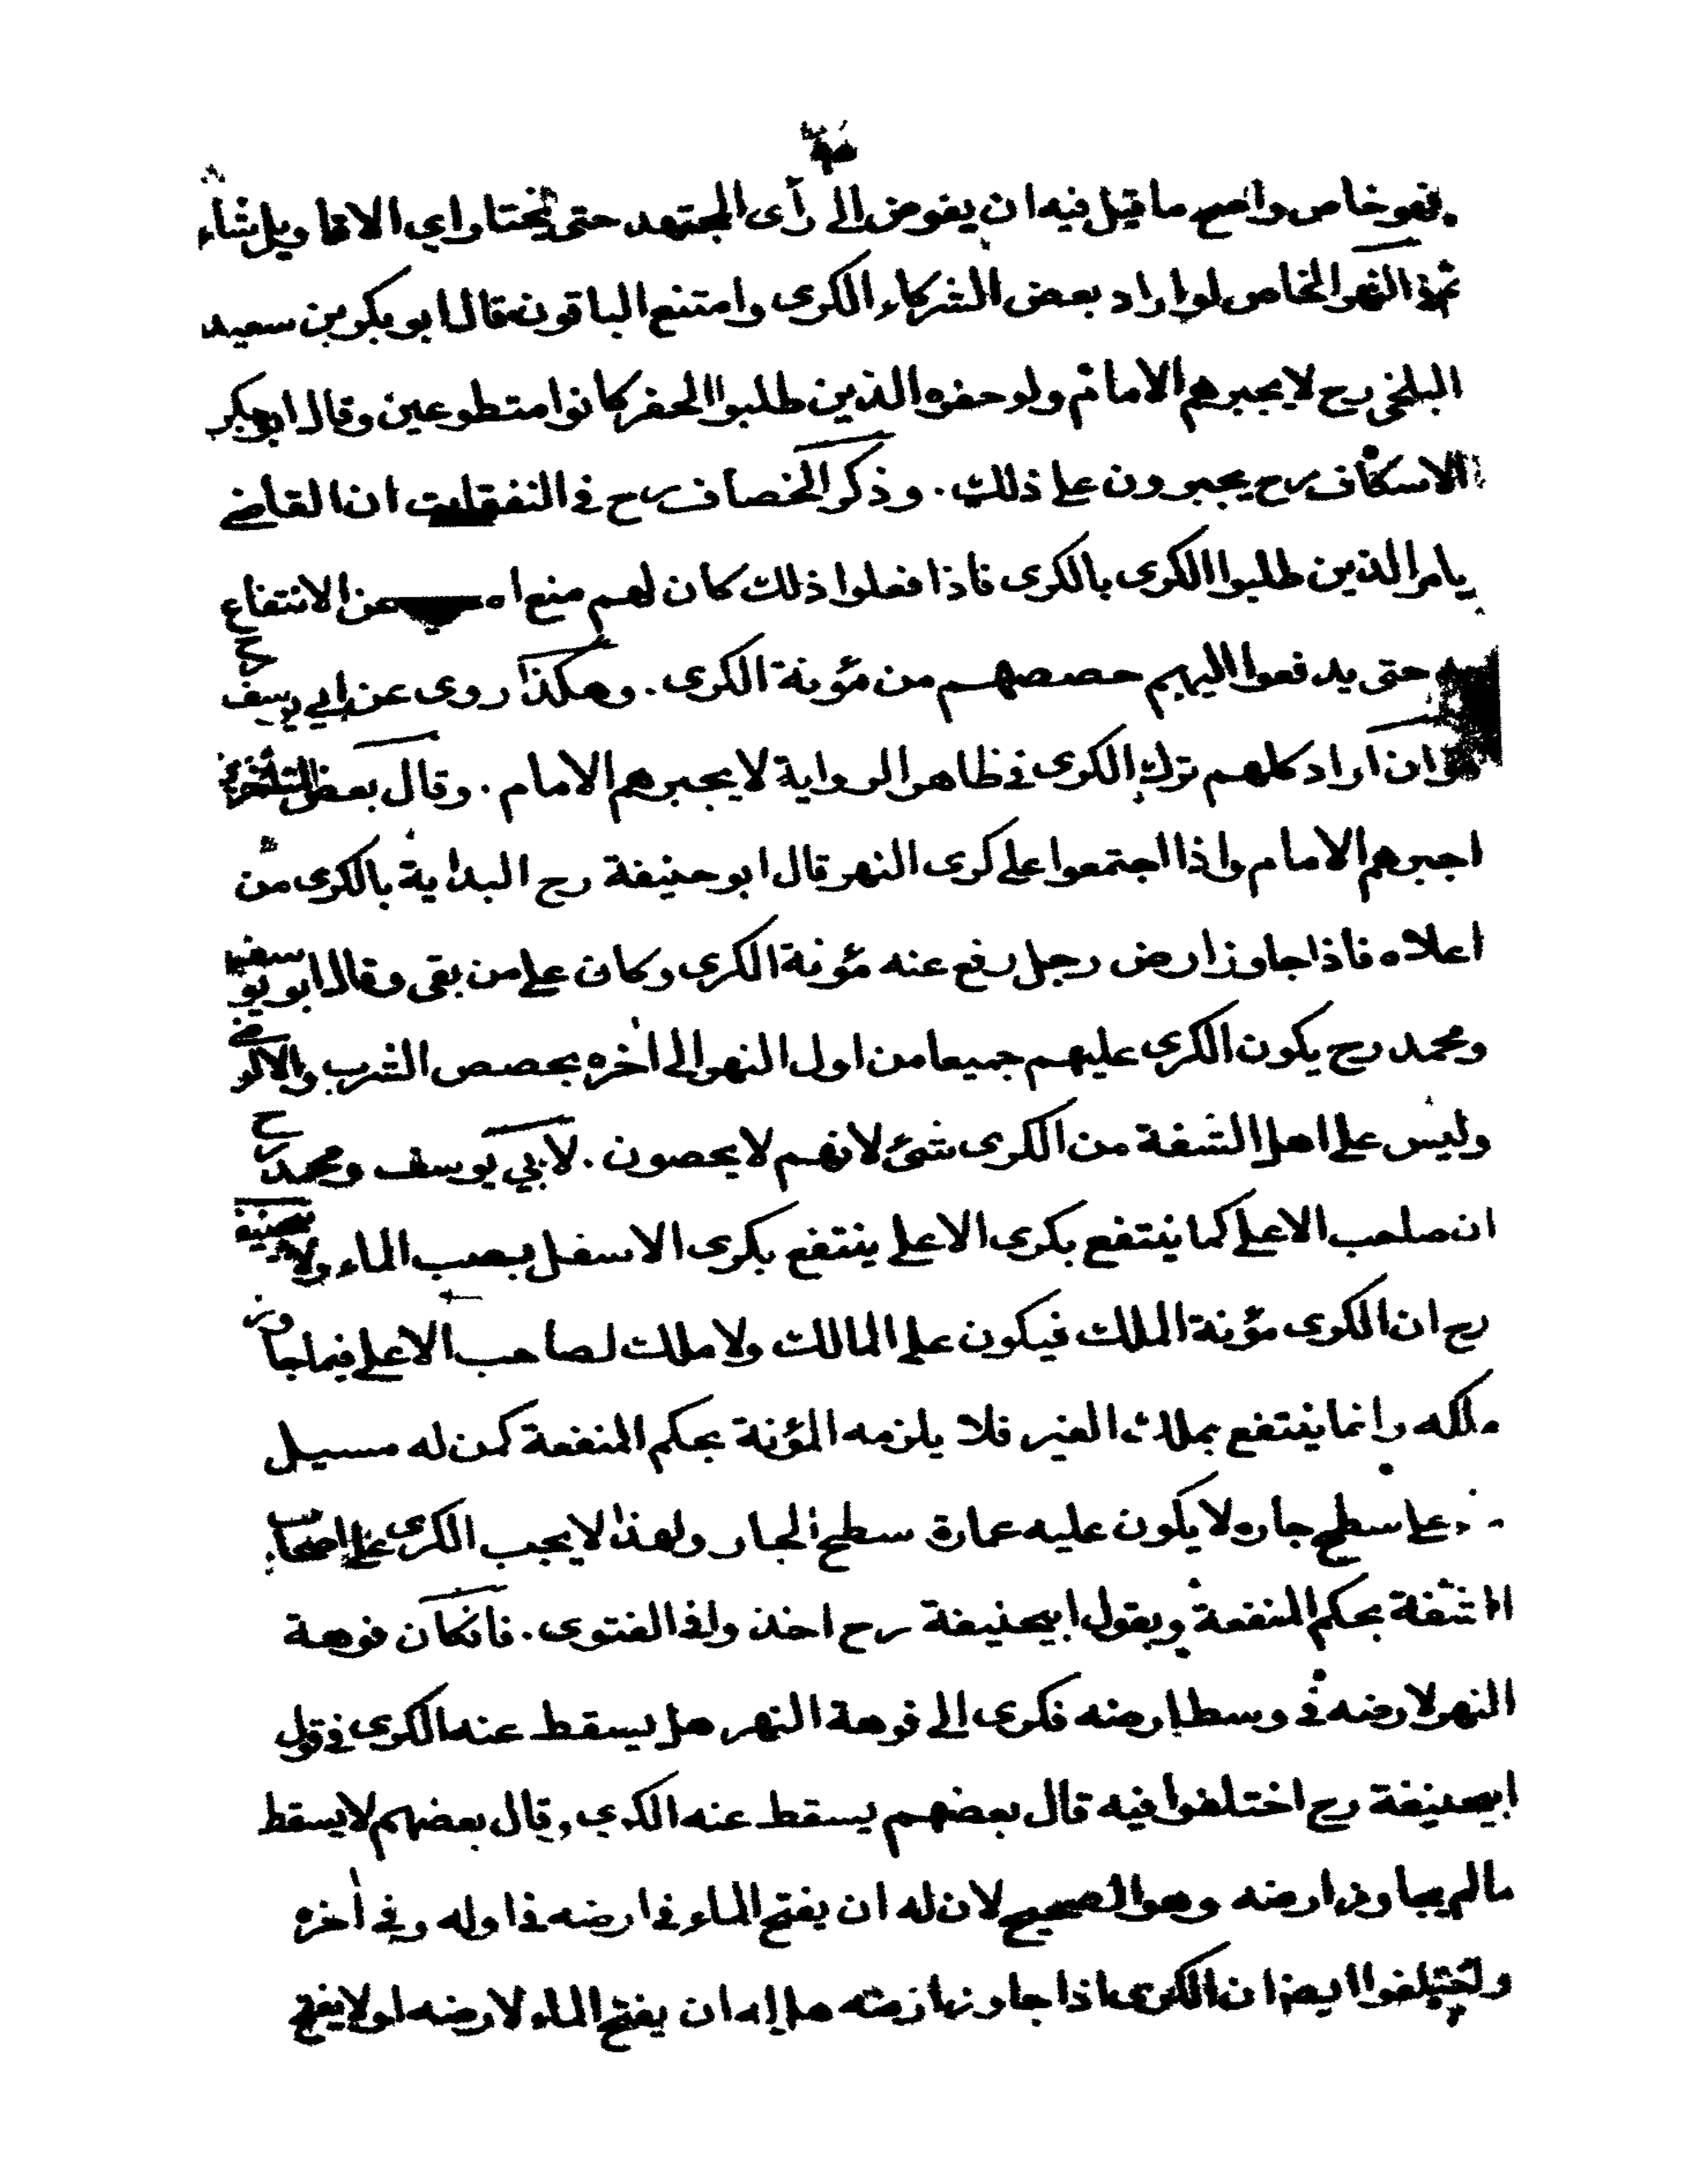 فهو خاص واصح ما قيل فيه ان يفوض الى رأى المجتهد حتى يختار اي الاقاويل شاء
ثم في النهر الخاص لو اراد بعض الشركاء الكرى وامتنع الباقون قال ابو بكر بن سعيد
البلخي رح لا يجبرهم الامام ولو حفره الذين طلبوا الحفر كانوا متطوعين وقال ابو بكر
الاسكاف رح يجبرون على ذلك . وذكر الخصاف رح في النفقات ان القاضي
يامر الذين طلبوا الكرى بالكرى فاذا فعلوا ذلك كان لهم منع عن الانتفاع
حتى يدفعوا اليهم حصصهم من مؤنة الكرى . وهكذا روى عن ابي يوسف رح
وان اراد كلهم ترك الكرى في ظاهر الرواية لا يجبرهم الامام . وقال بعض المتأخرين
اجبرهم الامام واذا اجتمعوا على كرى النهر قال ابو حنيفة رح البداية بالكرى من
اعلاه فاذا جاوز ارض رجل رفع عنه مؤنة الكرى وكان على من بقى وقال ابو يوسف
ومحمد رح يكون الكرى عليهم جميعا من اول النهر الى اخره بحصص الشرب والاراضي
وليس على اهل الشفة من الكرى شئ لانهم لا يحصون . لابي يوسف ومحمد رح
ان صاحب الاعلى كما ينتفع بكرى الاعلى ينتفع بكرى الاسفل بصب الماء ولابيحنيفة
رح ان الكرى مؤنة الملك فيكون على المالك ولا ملك لصاحب الاعلى فيما جاوز
ملكه وانما ينتفع بملك الغير فلا يلزمه المؤنة بحكم المنفعة كمن له مسيل
على سطح جاره لا يكون عليه عمارة سطح الجار ولهذا لا يجب الكرى على اصحاب
الشفة بحكم المنفعة وبقول ابيحنيفة رح اخذوا في الفتوى . فانكان فوهة
النهر لارضه في وسط ارضه فكرى الى فوهة النهر هل يسقط عنه الكرى في قول
ابيحنيفة رح اختلفوا فيه قال بعضهم يسقط عنه الكرى وقال بعضهم لا يسقط
ما لم يجاوز ارضه وهو الصحيح لان له ان يفتح الماء في ارضه في اوله وفي اخره
واختلفوا ايضا ان الكرى اذا جاوز ارضه هل له ان يفتح الماء لارضه او لا يفتح